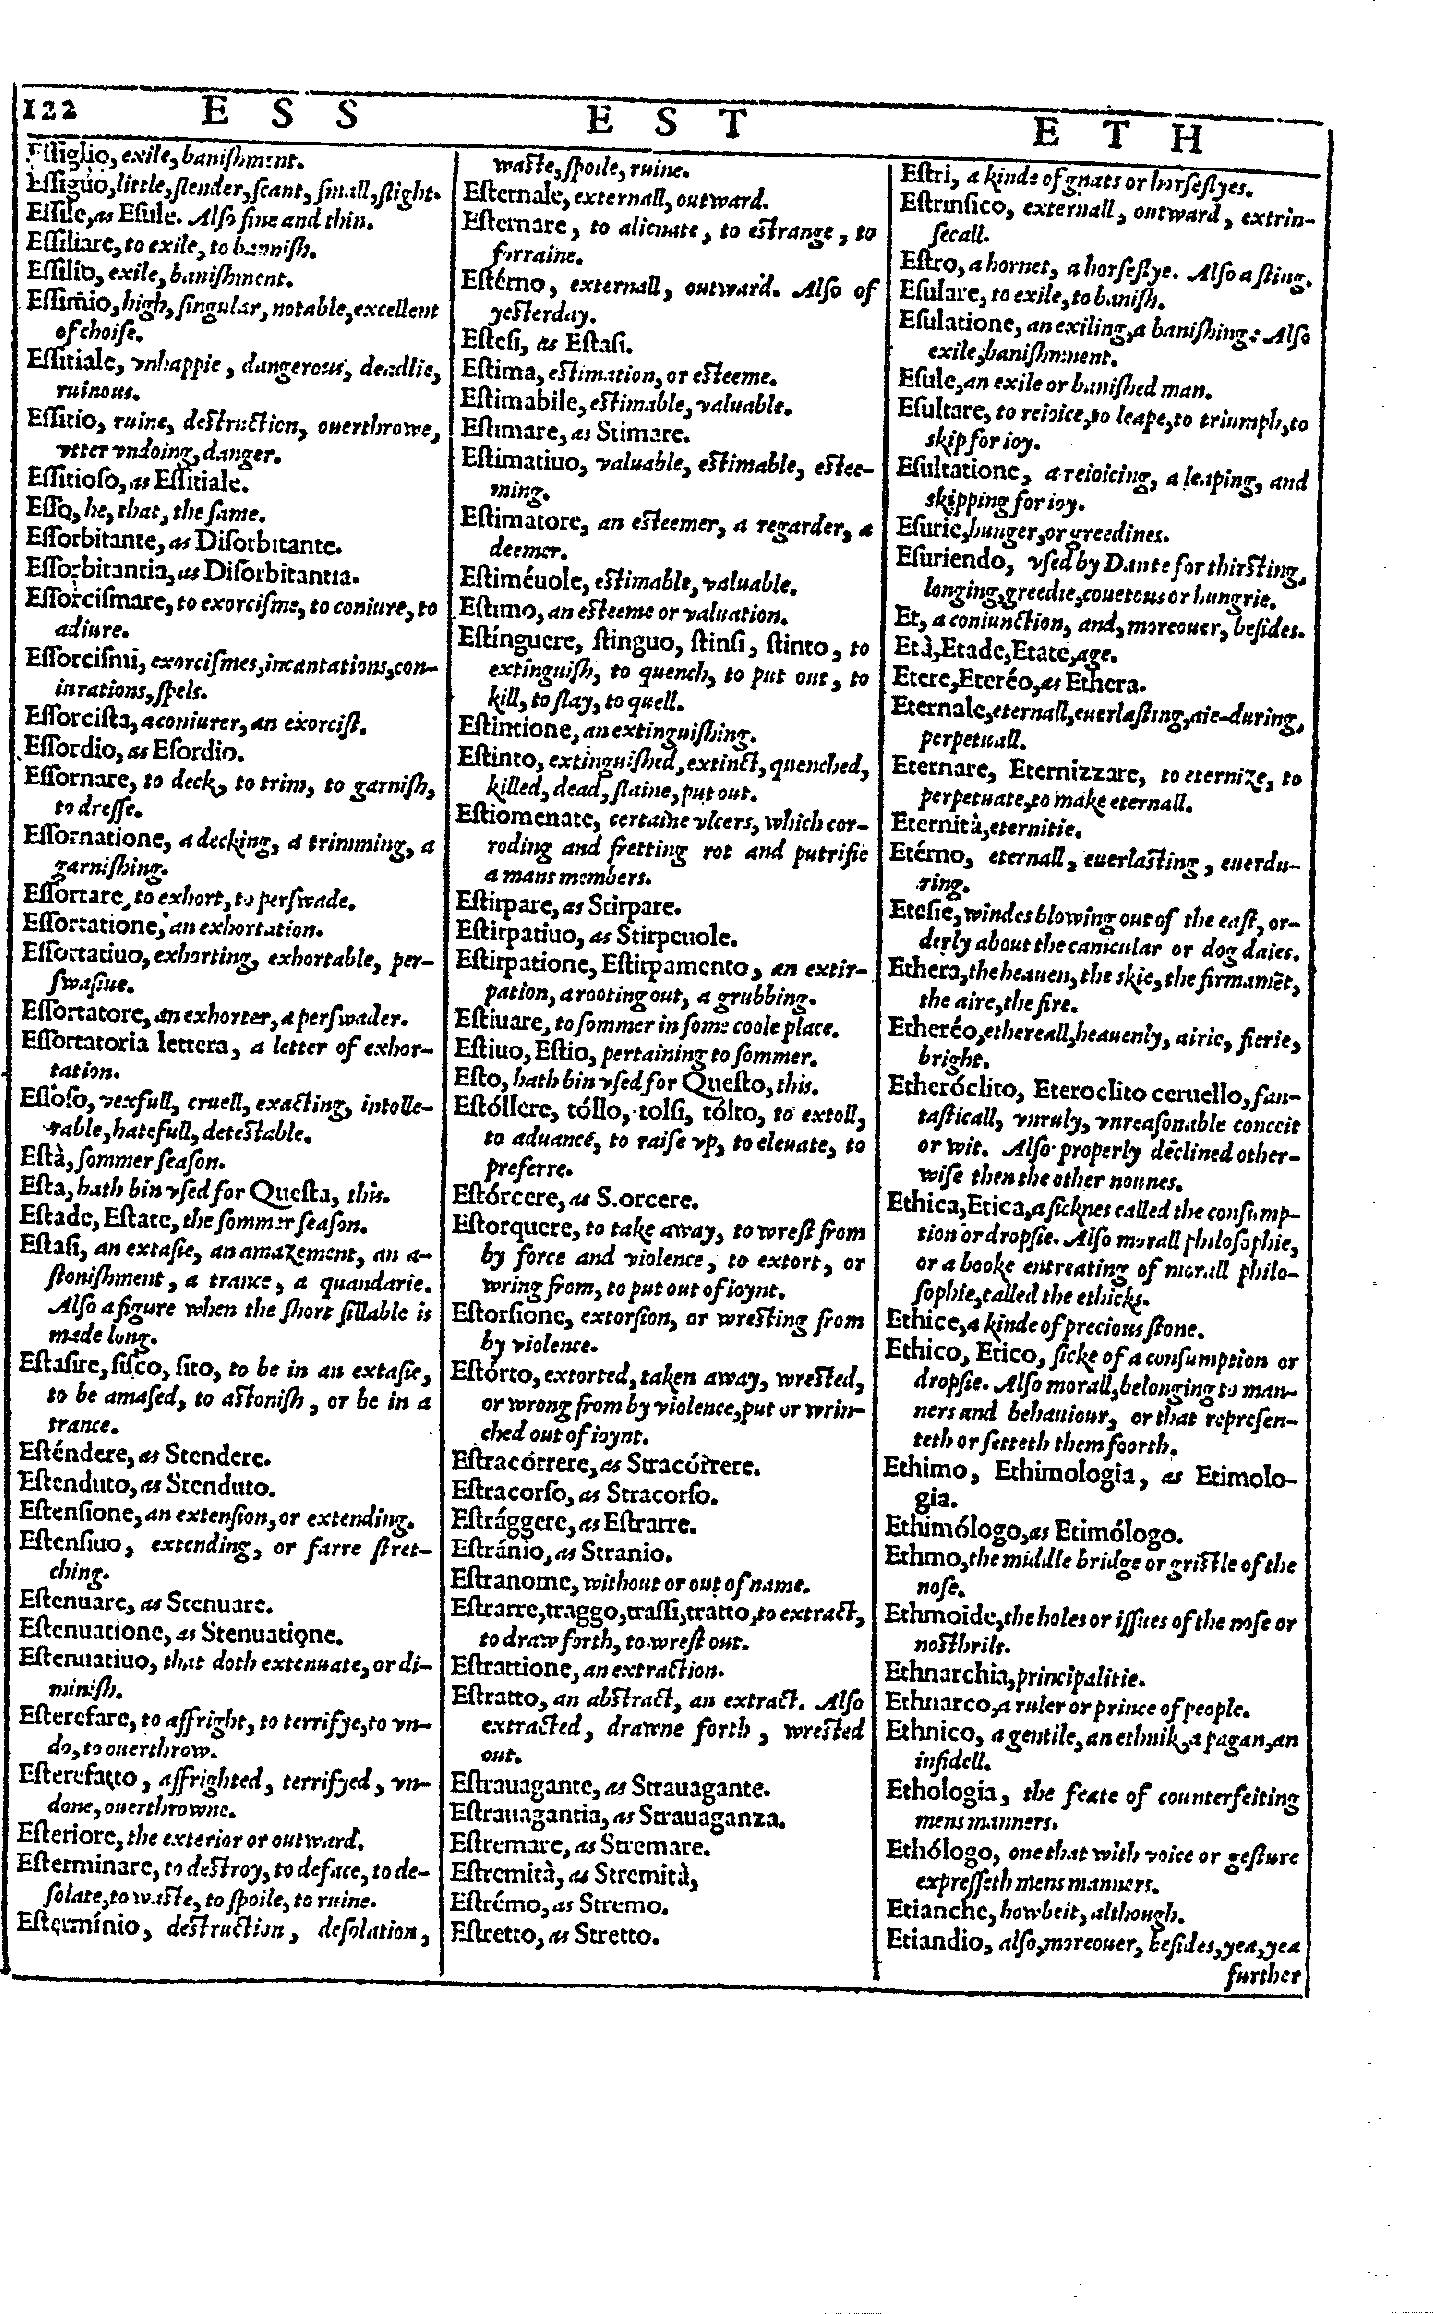 122 E S S E S T E T H
Eſſiglio, exile, baniſhment.
Eſſiguo, little, ſlender, ſcant, ſmall, ſlight.
Eſſile, as Eſule. Alſo fine and thin.
Eſſiliare, to exile, to banniſh.
Eſſilio, exile, baniſhment.
Eſſimio, high, ſingular, notable, excellent
of choiſe.
Eſſitiale, vnhappie, dangerous, deadlie,
ruinous.
Eſſitio, ruine, deſtruction, ouerthrowe,
vtter vndoing, danger.
Eſſitioſo, as Eſſitiale.
Eſſo, he, that, the ſame.
Eſſorbitante, as Diſorbitante.
Eſſorbitantia, as Diſorbitantia.
Eſſorciſmare, to exorciſme, to coniure, to
adiure.
Eſſorciſmi, exorciſmes, incantations, con-
iurations, ſpels.
Eſſorciſta, a coniurer, an exorciſt.
Eſſordio, as Eſordio.
Eſſornare, to deck, to trim, to garniſh,
to dreſſe.
Eſſornatione, a decking, a trimming, a
garniſhing.
Eſſortare, to exhort, to perſwade.
Eſſortatione, an exhortation.
Eſſortatiuo, exhorting, exhortable, per-
ſwaſiue.
Eſſortatore, an exhorter, a perſwader.
Eſſortatoria lettera, a letter of exhor-
tation.
Eſſoſo, vexfull, cruell, exacting, intolle-
rable, hatefull, deteſtable.
Eſtà, ſommer ſeaſon.
Eſta, hath bin vſed for Queſta, this.
Eſtade, Eſtate, the ſommer ſeaſon.
Eſtaſi, an extaſie, an amazement, an a-
ſtoniſhment, a trance, a quandarie.
Alſo a figure when the ſhort ſillable is
made long.
Eſtaſire, ſiſco, ſito, to be in an extaſie,
to be amaſed, to aſtoniſh, or be in a
trance.
Eſténdere, as Stendere.
Eſtenduto, as Stenduto.
Eſtenſione, an extenſion, or extending.
Eſtenſiuo, extending, or farre ſtret-
ching.
Eſtenuare, as Stenuare.
Eſtenuatione, as Stenuatione.
Eſtenuatiuo, that doth extenuate, or di-
miniſh.
Eſterefare, to affright, to terrifye, to vn-
do, to ouerthrow.
Eſterefatto, affrighted, terrifyed, vn-
done, ouerthrowne.
Eſteriore, the exterior or outward.
Eſterminare, to deſtroy, to deface, to de-
ſolate, to waſte, to ſpoile, to ruine.
Eſtermínio, deſtruction, deſolation,
waſte, ſpoile, ruine.
Eſternale, externall, outward.
Eſternare, to alienate, to eſtrange, to
forraine.
Eſtérno, externall, outward. Alſo of
yeſterday.
Eſteſi, as Eſtaſi.
Eſtima, eſtimation, or eſteeme.
Eſtimabile, eſtimable, valuable.
Eſtimare, as Stimare.
Eſtimatiuo, valuable, eſtimable, eſtee-
ming.
Eſtimatore, an eſteemer, a regarder, a
deemer.
Eſtiméuole, eſtimable, valuable.
Eſtimo, an eſteeme or valuation.
Eſtínguere, ſtinguo, ſtinſi, ſtinto, to
extinguiſh, to quench, to put out, to
kill, to ſlay, to quell.
Eſtintione, an extinguiſhing.
Eſtinto, extinguiſhed, extinct, quenched,
killed, dead, ſlaine, put out.
Eſtiomenate, certaine vlcers, which cor-
roding and fretting rot and putrifie
a mans members.
Eſtirpare, as Stirpare.
Eſtirpatiuo, as Stirpeuole.
Eſtirpatione, Eſtirpamento, an extir-
pation, a rooting out, a grubbing.
Eſtiuare, to ſommer in ſome coole place.
Eſtiuo, Eſtio, pertaining to ſommer.
Eſto, hath bin vſed for Queſto, this.
Eſtóllere, tóllo, tolſi, tólto, to extoll,
to aduance, to raiſe vp, to eleuate, to
preferre.
Eſtórcere, as S.orcere.
Eſtorquere, to take away, to wreſt from
by force and violence, to extort, or
wring from, to put out of ioynt.
Eſtorſione, extorſion, or wreſting from
by violence.
Eſtórto, extorted, taken away, wreſted,
or wrong from by violence, put or wrin-
ched out of ioynt.
Eſtracórrere, as Stracórrere.
Eſtracorſo, as Stracorſo.
Eſtrággere, as Eſtrarre.
Eſtránio, as Stranio.
Eſtranome, without or out of name.
Eſtrarre, traggo, traſſi, tratto, to extract,
to draw forth, to wreſt out.
Eſtrattione, an extraction.
Eſtratto, an abſtract, an extract. Alſo
extracted, drawne forth, wreſted
out.
Eſtrauagante, as Strauagante.
Eſtrauagantia, as Strauaganza.
Eſtremare, as Stremare.
Eſtremità, as Stremità,
Eſtrémo, as Stremo.
Eſtretto, as Stretto.
Eſtri, a kinde of gnats or horſeflyes.
Eſtrinſico, externall, outward, extrin-
ſecall.
Eſtro, a hornet, a horſeflye. Alſo a ſting.
Eſulare, to exile, to baniſh.
Eſulatione, an exiling, a baniſhing: Alſo
exile, baniſhment.
Eſule, an exile or baniſhed man.
Eſultare, to reioice, to leape, to triumph, to
skip for ioy.
Eſultatione, a reioicing, a leaping, and
skipping for ioy.
Eſurie, hunger, or greedines.
Eſuriendo, vſed by Dante for thirſting,
longing, greedie, couetous or hungrie.
Et, a coniunction, and, moreouer, beſides.
Età, Etade, Etate, age.
Etere, Eteréo, as Ethera.
Eternale, eternall, euerlaſting, aie-during,
perpetuall.
Eternare, Eternizzare, to eternize, to
perpetuate, to make eternall.
Eternità, eternitie.
Etérno, eternall, euerlaſting, euerdu-
ring.
Eteſie, windes blowing out of the eaſt, or-
derly about the canicular or dog daies.
Ethera, the heauen, the skie, the firmamēt,
the aire, the fire.
Etheréo, ethereall, heauenly, airie, fierie,
bright.
Etheróclito, Eteroclito ceruello, fan-
taſticall, vnruly, vnreaſonable conceit
or wit. Alſo properly declined other-
wiſe then the other nounes.
Ethica, Etica, a ſicknes called the conſump-
tion or dropſie. Alſo morall philoſophie,
or a booke entreating of morall philo-
ſophie, called the ethicks.
Ethice, a kinde of precious ſtone.
Ethico, Etico, ſicke of a conſumption or
dropſie. Alſo morall, belonging to man-
ners and behauiour, or that repreſen-
teth or ſetteth them foorth.
Ethimo, Ethimologia, as Etimolo-
gia.
Ethimólogo, as Etimólogo.
Ethmo, the middle bridge or griſtle of the
noſe.
Ethmoide, the holes or iſſues of the noſe or
noſthrils.
Ethnarchia, principalitie.
Ethnarco, a ruler or prince of people.
Ethnico, a gentile, an ethnik, a pagan, an
infidell.
Ethologia, the feate of counterfeiting
mens manners.
Ethólogo, one that with voice or geſture
expreſſeth mens manners.
Etianche, howbeit, although.
Etiandio, alſo, moreouer, beſides, yea, yea
further